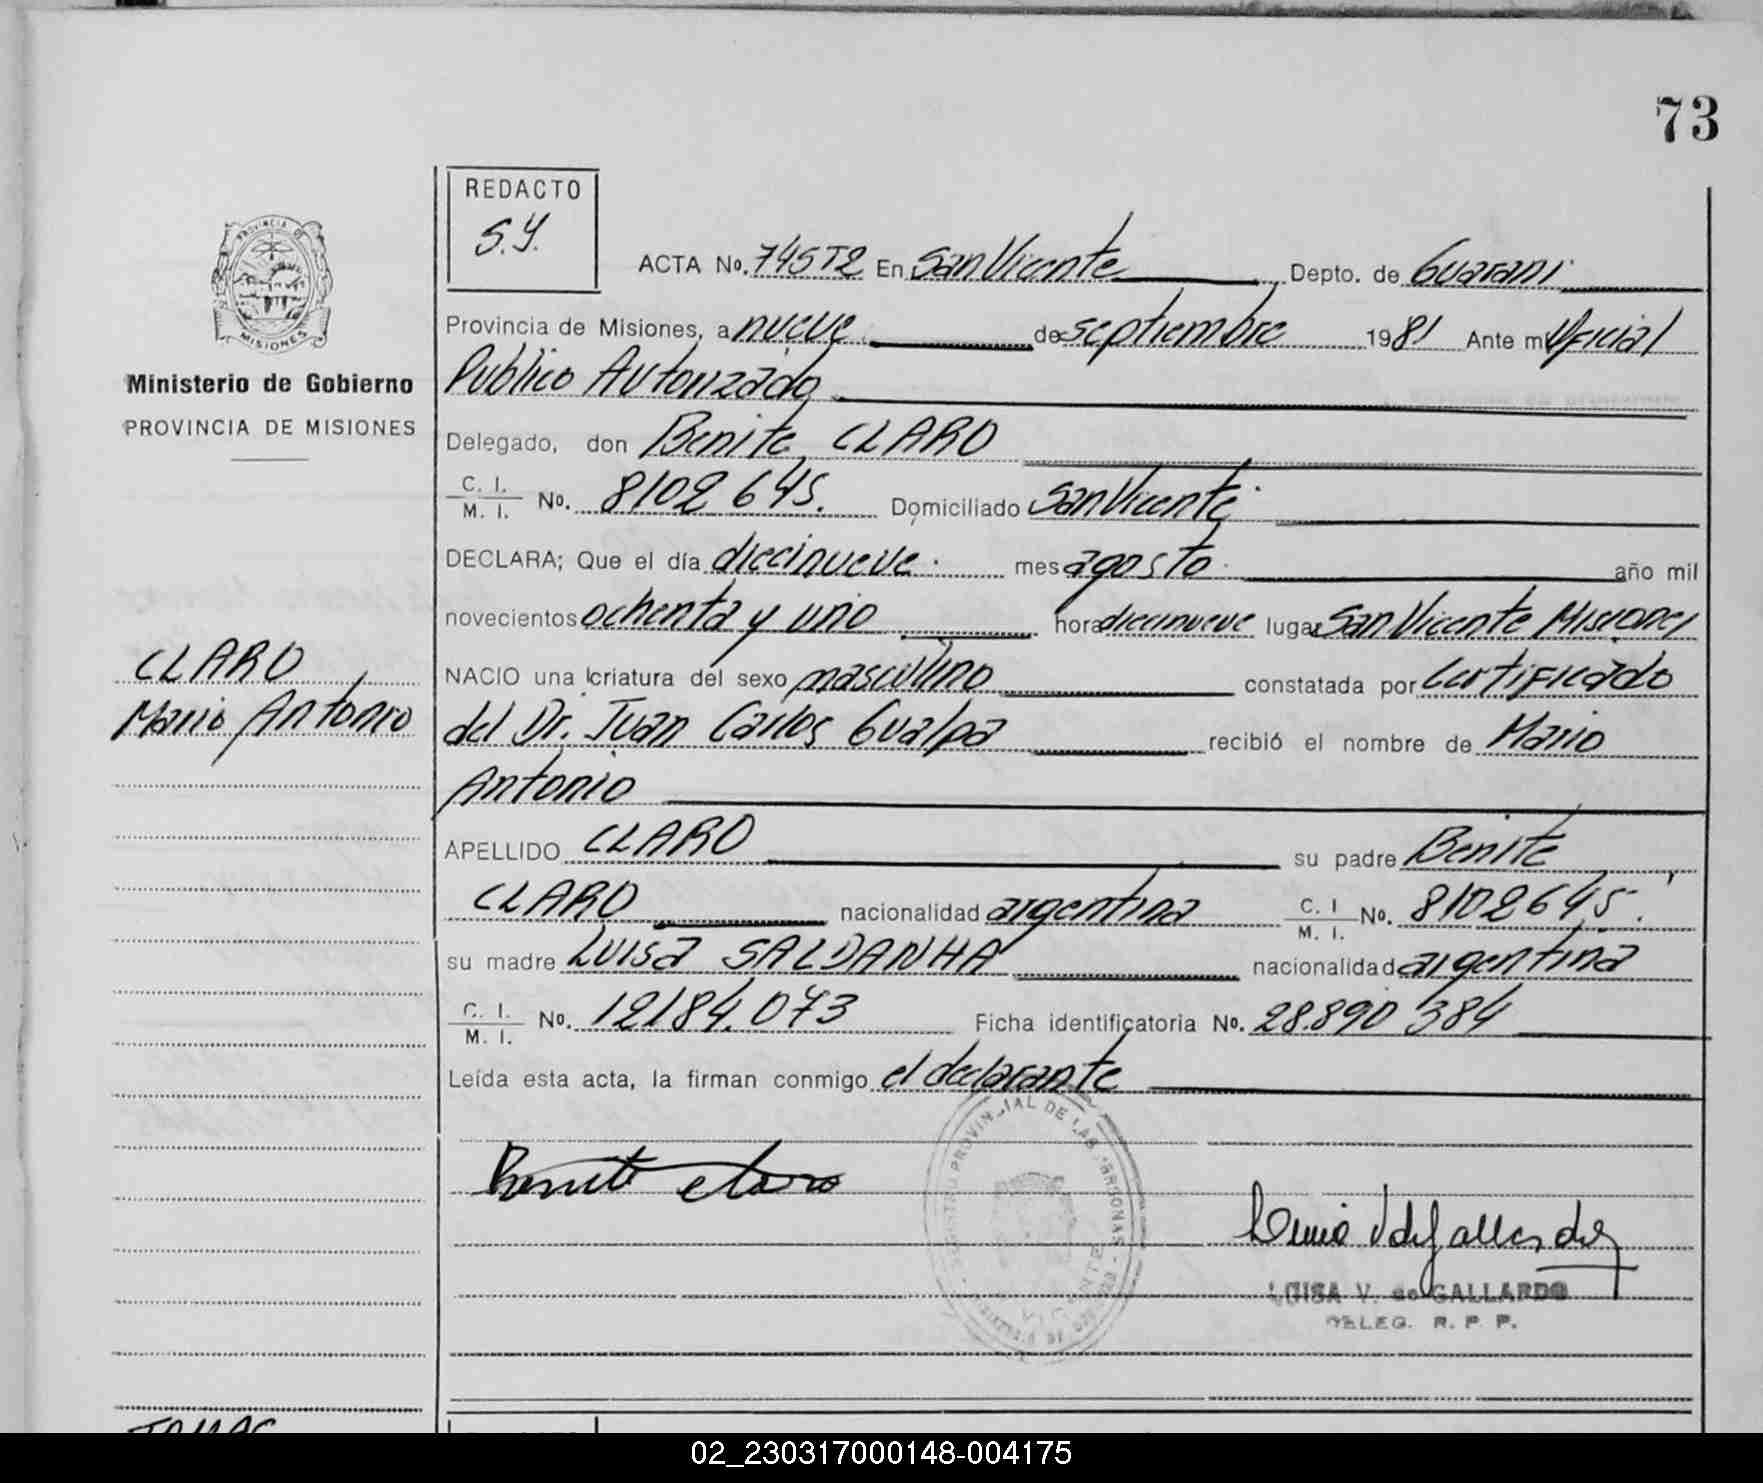 73
REDACTO
S.Y.
PROVINCIA DE
MISIONES
Ministerio de Gobierno
PROVINCIA DE MISIONES
ACTA No. 745T2 En San Vicente Depto. de Guarani
Provincia de Misiones, a nueve de septiembre 1981 Ante mi Oficial
Publico Autorizado
Delegado, don Benite CLARO
C. I.
M. I. No. 8102645. Domiciliado San Vicente
DECLARA; Que el día diecinueve mes agosto año mil
novecientos ochenta y uno hora diecinueve lugar San Vicente Misiones
NACIO una criatura del sexo masculino constatada por Certificado
del Dr. Juan Carlos Gualpa recibió el nombre de Mario
Antonio
CLARO
Mario Antonio
APELLIDO CLARO su padre Benite
CLARO nacionalidad argentina C. I. M. I. No. 8102645.
su madre Luisa SALDANHA nacionalidad argentina
C. I.
M. I. No. 12184.073 Ficha identificatoria No. 28.890 384
Leída esta acta, la firman conmigo el declarante
Benite Claro
REGISTRO PROVINCIAL DE LAS PERSONAS
LUISA V. de GALLARDO
DELEG. R. P. P.
02_230317000148-004175